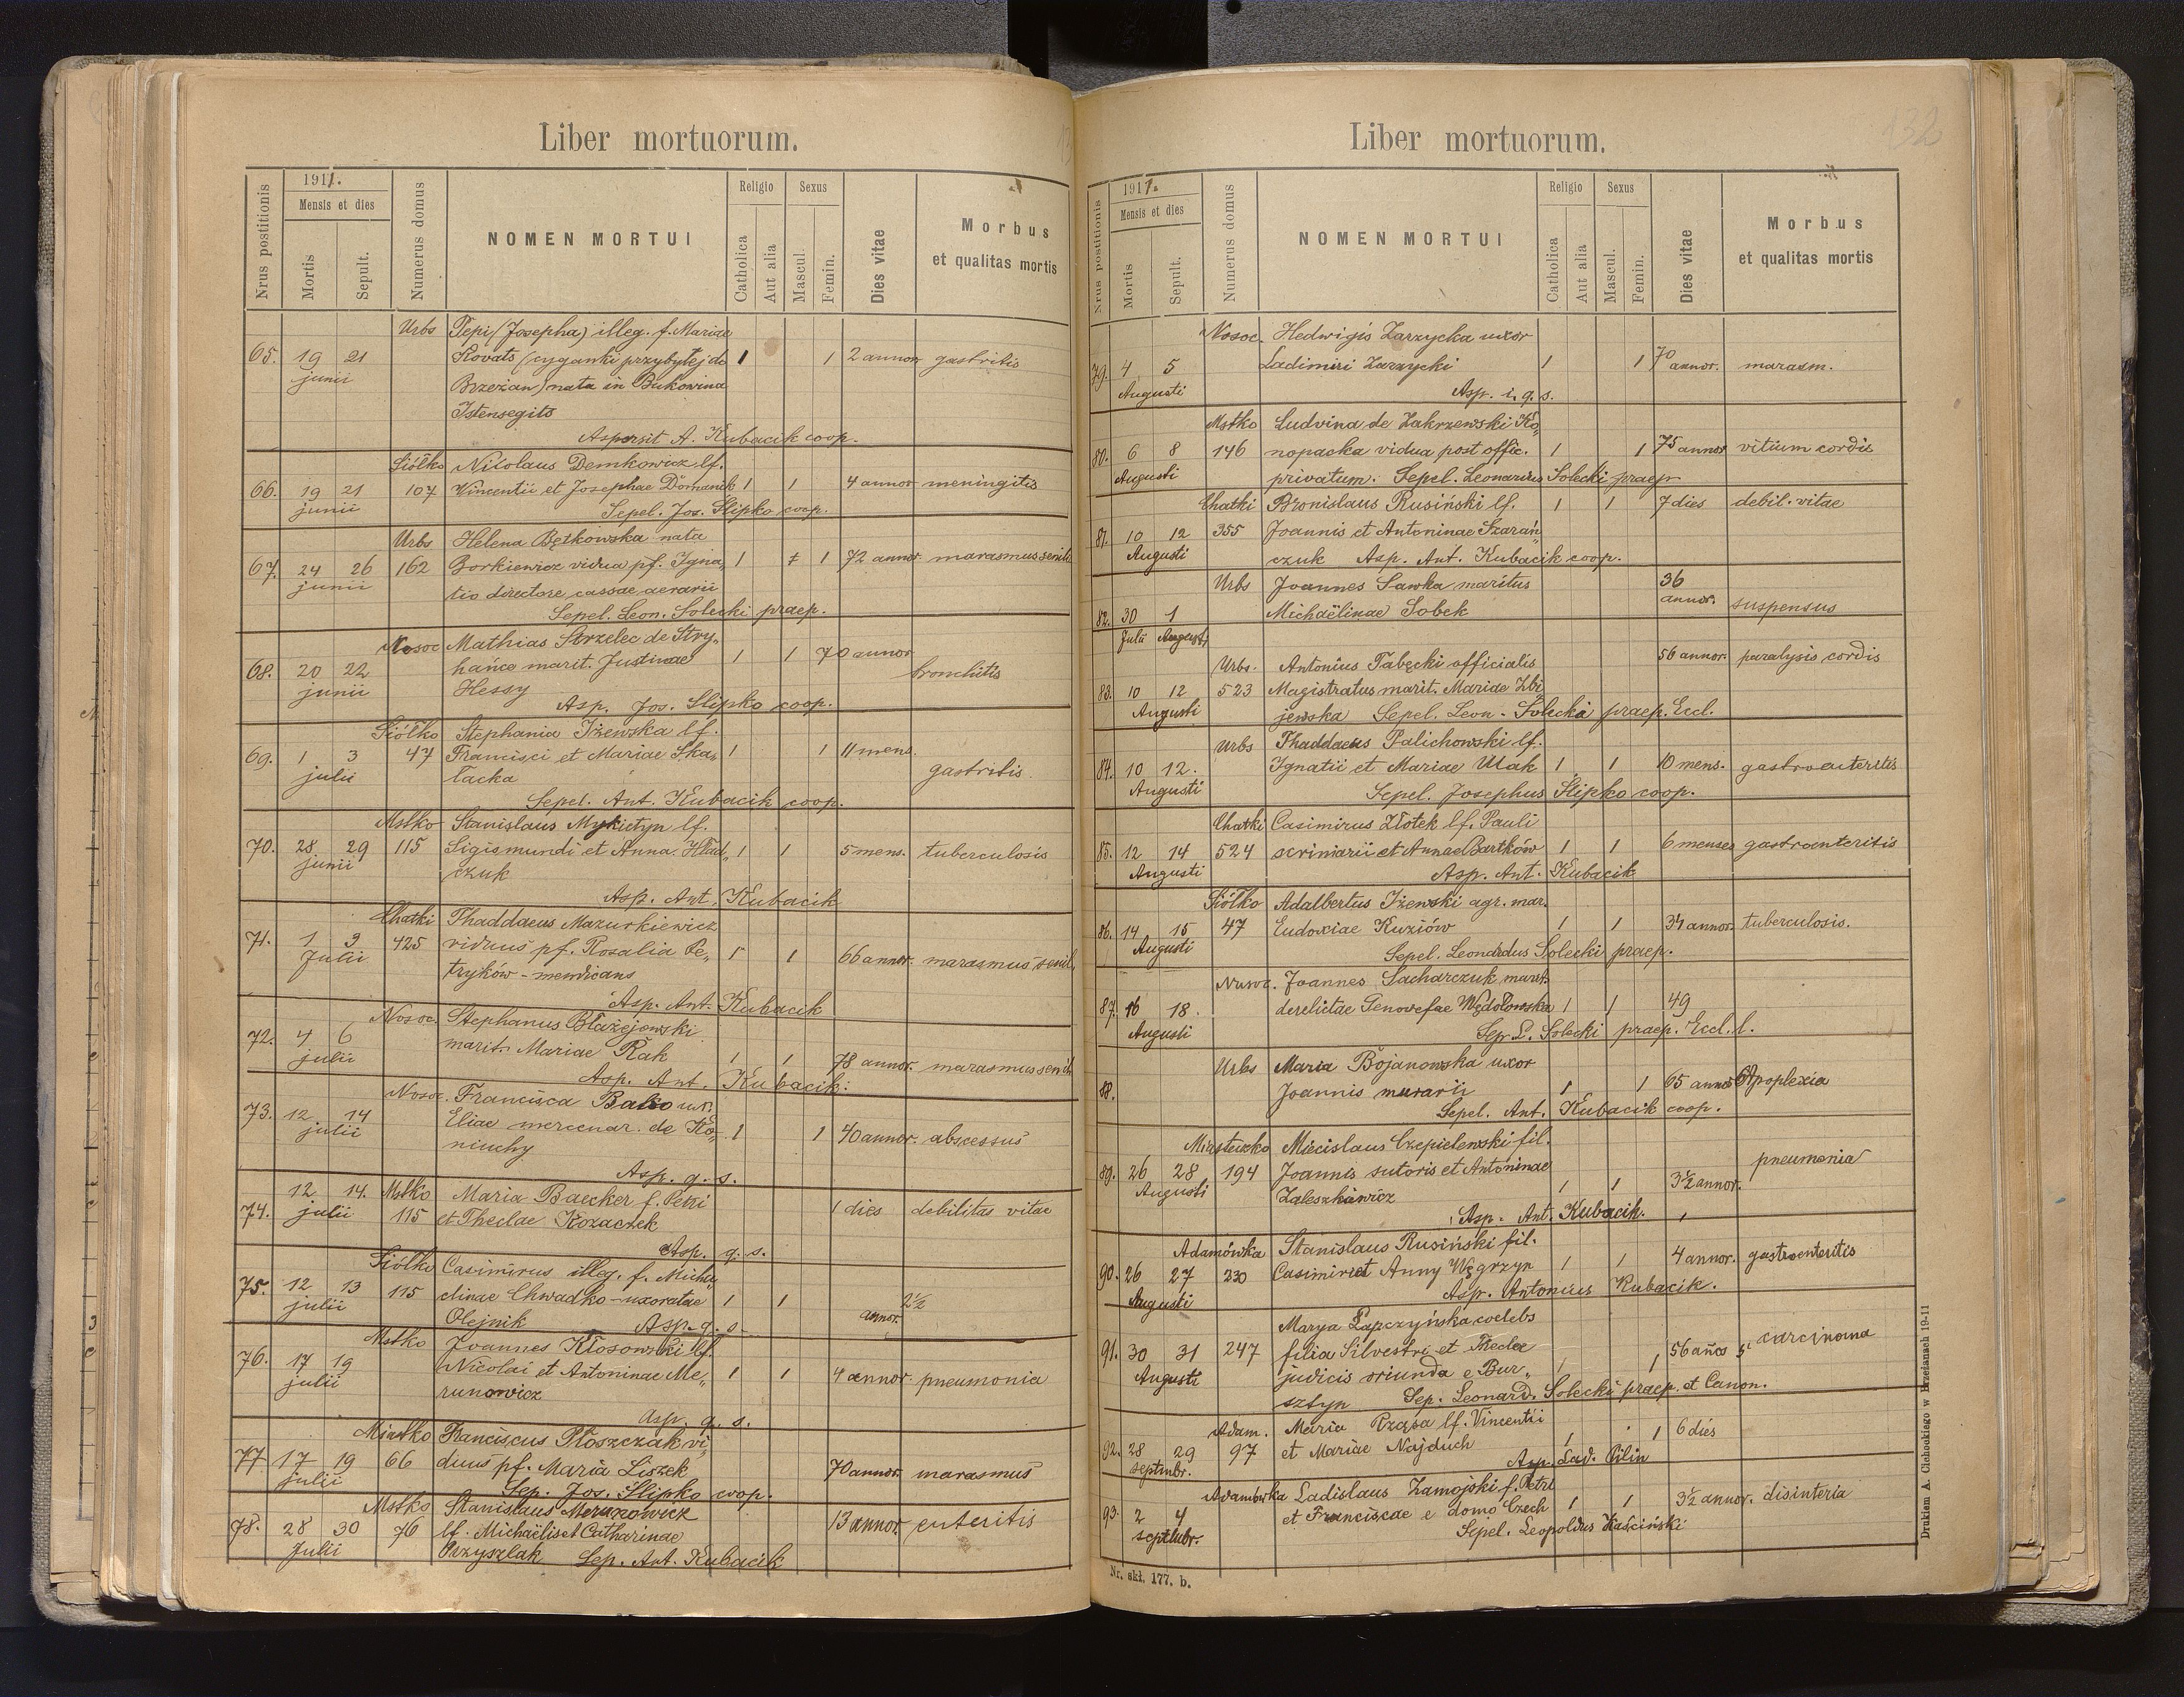 Liber mortuorum.
Nrus postitionis
1911.
Mensis et dies
Mortis
Sepult.
Numerus domus
NOMEN MORTUI
Religio
Catholica
Aut alia
Sexus
Mascul.
Femin.
Dies vitae
Morbus
et qualitas mortis
Urbs Pepi (Josepha) illeg. f. Mariae
65. 19 21 Kovats (cyganki przybyłej do 1 1 2 annor gastritis
junii Brzeżan) nata in Bukowina
Istensegits
Aspersit A. Kubacik coop.
Siółko Nicolaus Demkowicz lf.
66. 19 21 107 Vincentii et Josephae Domanik 1 1 4 annor meningitis
junii Sepel. Jos. Slipko coop.
Urbs Helena Bętkowska nata
67. 24 26 162 Borkiewicz vidua pf. Igna„ 1 1 72 annor. marasmus senilis
junii tio directore cassae aerarii
Sepel. Leon. Solecki praep.
Nosoc Mathias Strzelec de Stry„
68. 20 22 hańce marit. Justinae 1 1 70 annor
junii Hessy bronchitis
Asp. Jos. Slipko coop.
Siółko Stephania Iżewska lf.
69. 1 3 47 Francisci et Mariae Ska„ 1 1 11 mens.
julii łacka gastritis
Sepel. Ant. Kubacik coop.
Mstko Stanislaus Mykietyn lf.
70. 28 29 115 Sigismundi et Anna Hład„ 1 1 5 mens. tuberculosis
junii czuk
Asp. Ant. Kubacik
Chatki Thaddaeus Mazurkiewicz
71. 1 3 425 viduus pf. Rosalia Pe„ 1 1 66 annor. marasmus senil.
Julii tryków - mendicans
Asp. Ant. Kubacik
Nosoc. Stephanus Błażejowski
72. 4 6 marit. Mariae Rak 1 1 78 annor. marasmus senil.
julii Asp. Ant. Kubacik.
Nosoc. Francisca Balio ux.
73. 12 14 Eliae mercenar. de Ko„ 1 1 40 annor. abscessus
julii niuchy
Asp. q. s.
12 14. Mstko Maria Baecker f. Petri
74. julii 115 et Theclae Kozaczek 1 dies debilitas vitae
Asp. q. s.
Siółko Casimirus illeg. f. Micha„
75. 12 13 115 elinae Chwadko - uxoratae 1 1 2½
julii Olejnik Asp. q. s. annor.
Mstko Joannes Kłosowski lf.
76. 17 19 Nicolai et Antoninae Me„ 1 1 4 annor. pneumonia
julii runowicz
Asp. q. s.
Miastko Franciscus Płoszczak vi„
77 17 19 66 duus pf. Maria Liszek 70 annor. marasmus
julii Sep. Jos. Slipko coop.
Mstko Stanislaus Merunowicz
78. 28 30 76 lf. Michaëlis et Catharinae 13 annor. enteritis
Julii Przyszlak Sep. Ant. Kubacik
Liber mortuorum.
132
Nrus postitionis
1911.
Mensis et dies
Mortis
Sepult.
Numerus domus
NOMEN MORTUI
Religio
Catholica
Aut alia
Sexus
Mascul.
Femin.
Dies vitae
Morbus
et qualitas mortis
Nosoc. Hedwigis Zarzycka uxor
79. 4 5 Ladimiri Zarzycki 1 1 70 annor. marasm.
Augusti Asp. i. q. s.
Mstko Ludvina de Zakrzewski Ko„
80. 6 8 146 nopacka vidua post offic. 1 1 75 annor vitium cordis
Augusti privatum. Sepel. Leonardus Solecki praep
Chatki Bronislaus Rusiński lf. 1 1 7 dies debil. vitae
81. 10 12 355 Joannis et Antoninae Szarań„
Augusti czuk Asp. Ant. Kubacik coop.
Urbs Joannes Sawka maritus 36
82. 30 1 Michaëlinae Sobek annor. suspensus
Julii Augusti
Urbs. Antonius Tabęcki officialis 56 annor. paralysis cordis
83. 10 12 523 Magistratus marit. Mariae Zbi„
Augusti jewska Sepel. Leon. Solecki praep. Eccl.
Urbs Thaddaeus Palichowski lf.
84. 10 12. Ignatii et Mariae Ulak 1 1 10 mens. gastroenteritis
Augusti Sepel. Josephus Slipko coop.
Chatki Casimirus Złotek lf. Pauli
85. 12 14 524 scriniarii et Annae Bartków 1 1 6 menses gastroenteritis
Augusti Asp. Ant. Kubacik
Siółko Adalbertus Iżewski agr. mar.
86. 14 15 47 Eudoxiae Kuziów 1 1 34 annor. tuberculosis.
Augusti Sepel. Leonardus Solecki praep.
Nosoc. Joannes Sacharczuk marit.
87. 16 18. derelictae Genowefae Wędołowska 1 1 49
Augusti Sep. L. Solecki praep. Eccl. l.
Urbs Maria Bojanowska uxor
88. Joannis murarii 1 1 65 annor Apoplexia
Sepel. Ant. Kubacik coop.
Miasteczko Miecislaus Czepielewski fil.
89. 26 28 194 Joannis sutoris et Antoninae pneumonia
Augusti Zaleszkiewicz 1 1 3½ annor.
Asp. Ant. Kubacik.
Adamówka Stanislaus Rusiński fil.
90. 26 27 330 Casimiri et Anny Węgrzyn 1 1 4 annor. gastroenteritis
Augusti Asp. Antonius Kubacik.
Marya Łapczyńska coelebs
91. 30 31 247 filia Silvestri et Theclae 1 1 56 años carcinoma
Augusti judicis oriunda e Bur„
sztyn Sep. Leonard. Solecki praep. et Canon.
Adam. Maria Prząsa lf. Vincentii 1 1 6 dies
92. 28 29 97 et Mariae Najduch
septmbr. Asp. Lad. Pilin
Adamówka Ladislaus Zamojski f. Petri
93. 2 4 et Franciscae e domo Czech 1 1 3½ annor. disinteria
septmbr. Sepel. Leopoldus Kaściński
Nr. skł. 177. b.
Drukiem A. Cichockiego w Brzeżanach 19-11